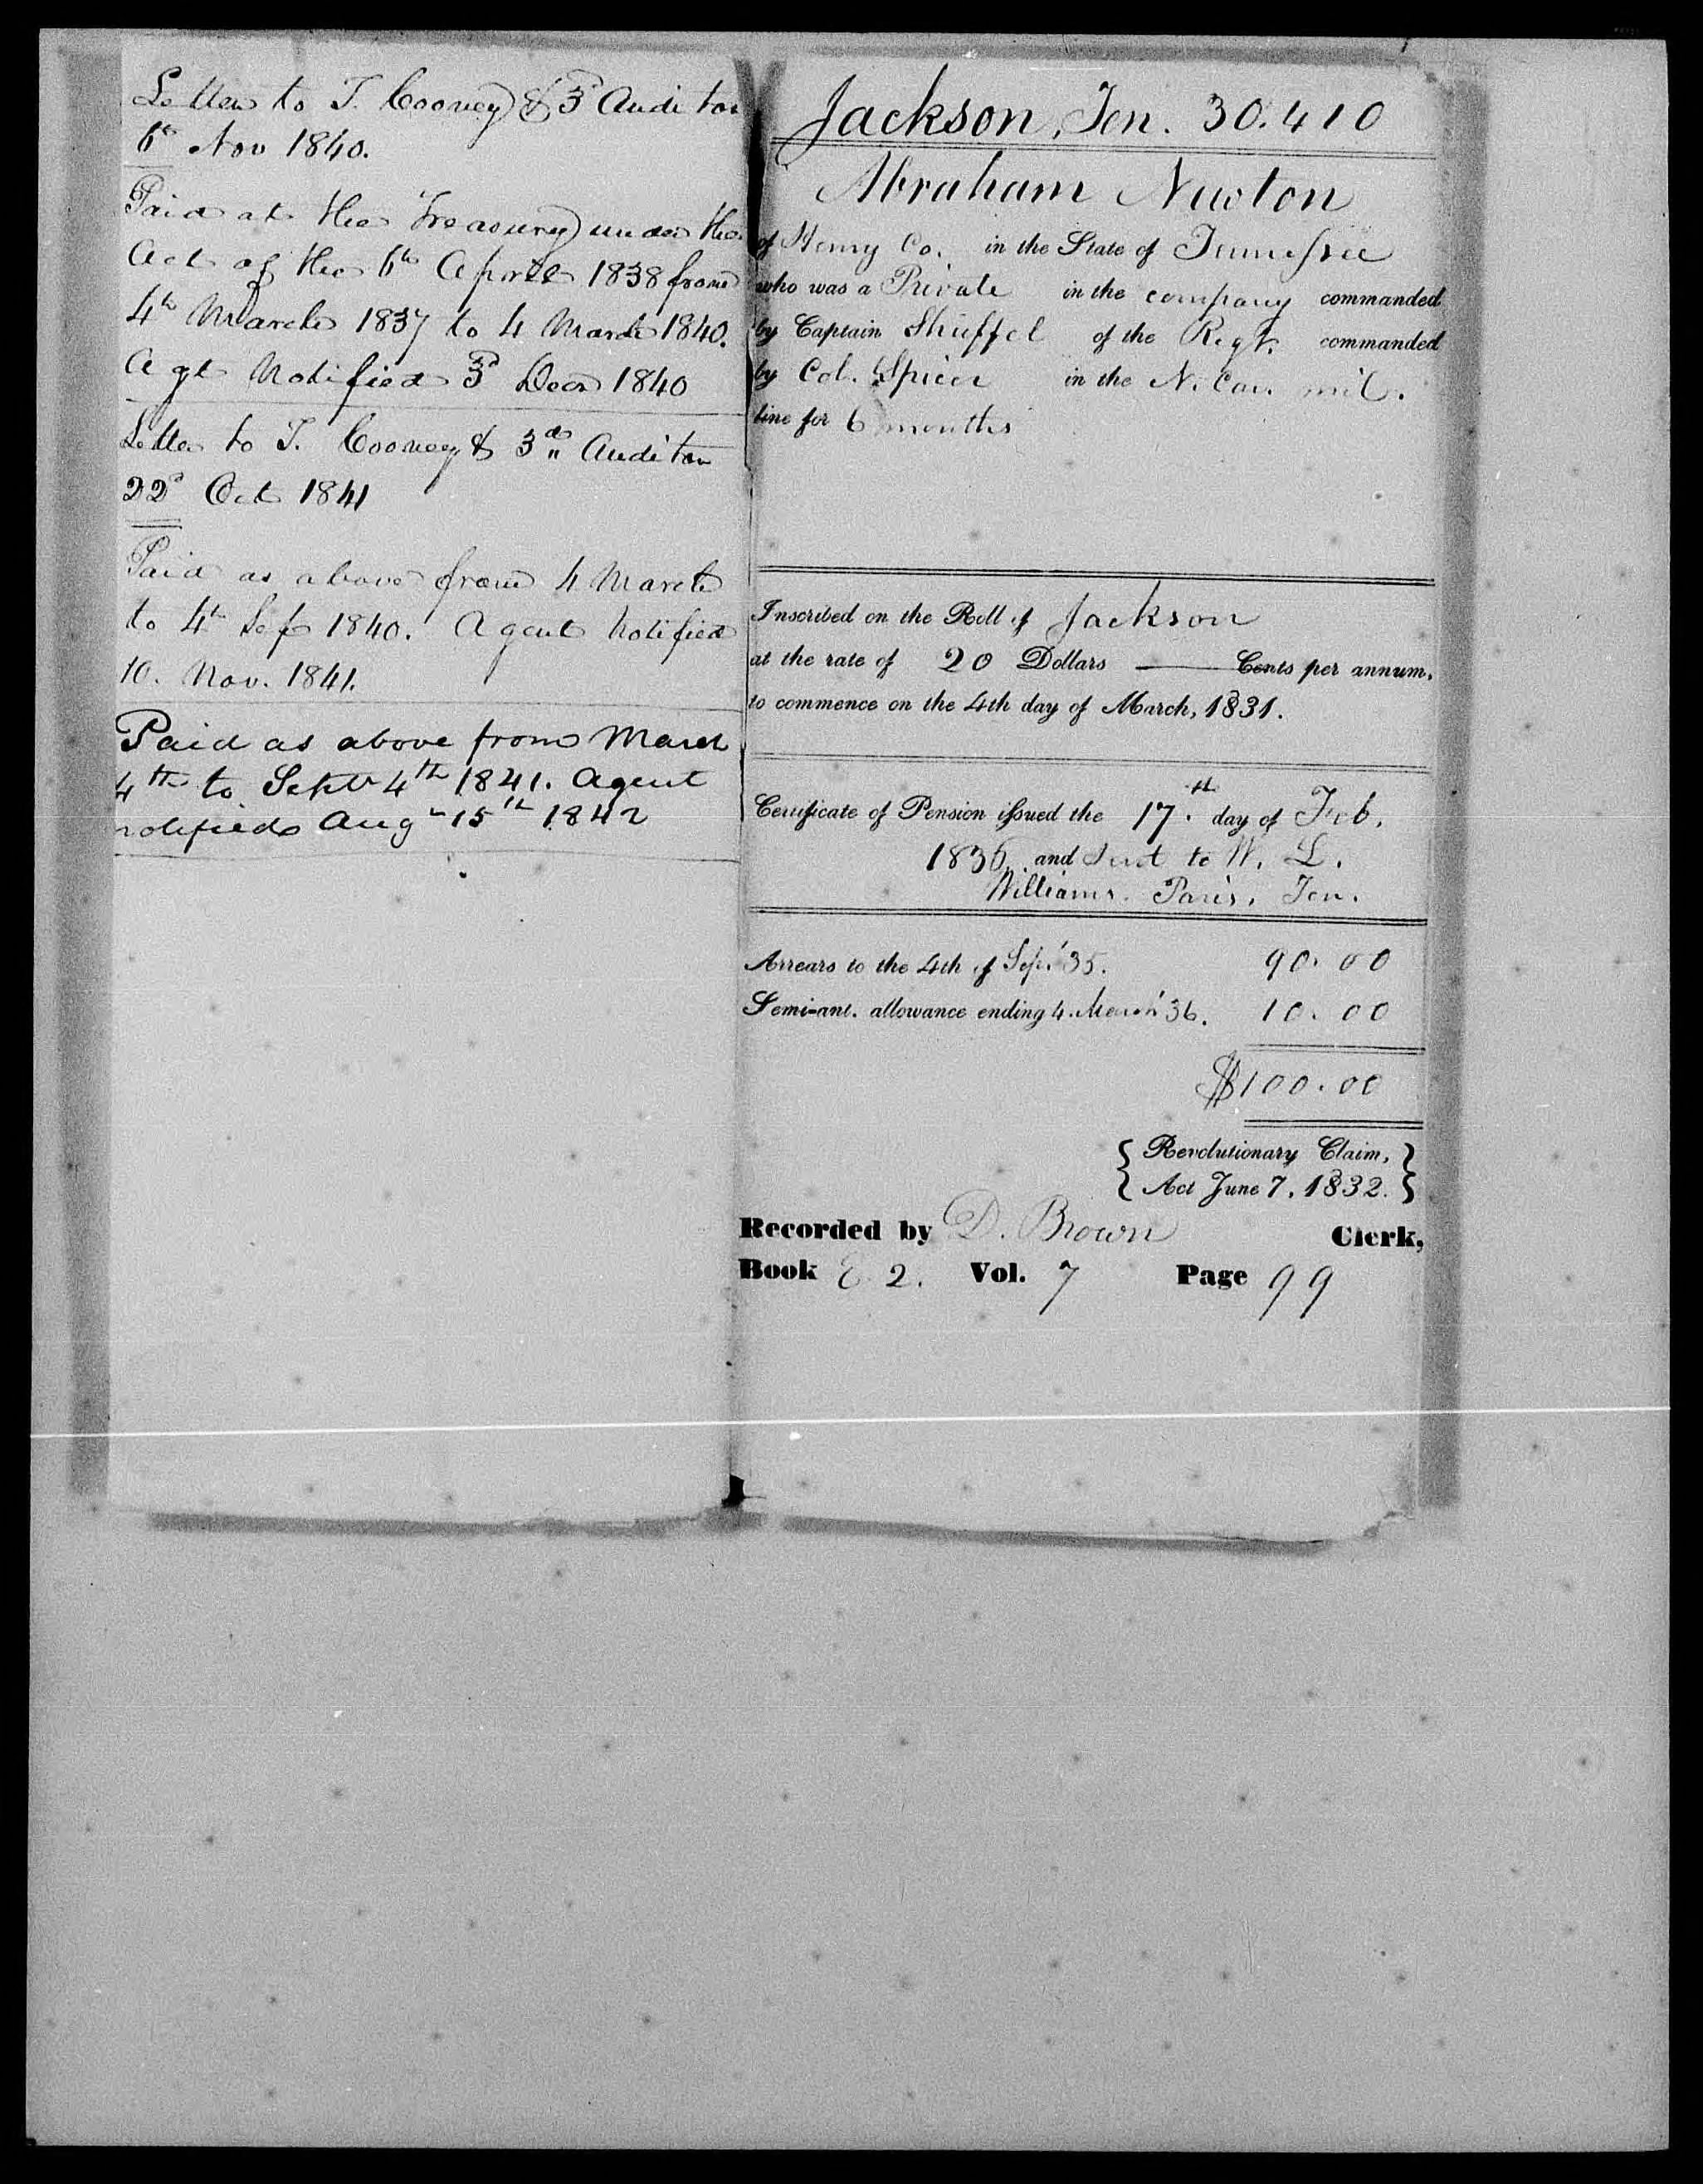 Letter to T. Cooney & 3d Auditor
6th Nov 1840.
Paid at the Treasury under the
Act of the 6th April 1838 from
4th March 1837 to 4 March 1840.
Agt Notified 3d Decr 1840
Letter to T. Cooney & 3d Auditor
22d Oct 1841
Paid as above from 4 March
to 4th Sep 1840. Agent Notified
10. Nov. 1841.
Paid as above from March
4th to Septr 4th 1841. Agent
notified Aug 15th 1842
Jackson, Ten. 30.410
Abraham Newton
of Henry Co. in the State of Tennessee
who was a Private in the company commanded
by Captain Shuffel of the Regt. commanded
by Col. Spicer in the N. Car. mil.
line for 6 months
Inscribed on the Roll of Jackson
at the rate of 20 Dollars — Cents per annum,
to commence on the 4th day of March, 1831.
Certificate of Pension issued the 17th day of Feb.
1836 and Sent to W. L.
Williams. Paris, Ten.
Arrears to the 4th of Sep. '35. 90.00
Semi-anl. allowance ending 4. March '36. 10.00
$100.00
{ Revolutionary Claim, }
{ Act June 7, 1832. }
Recorded by D. Brown Clerk,
Book E. 2. Vol. 7 Page 99